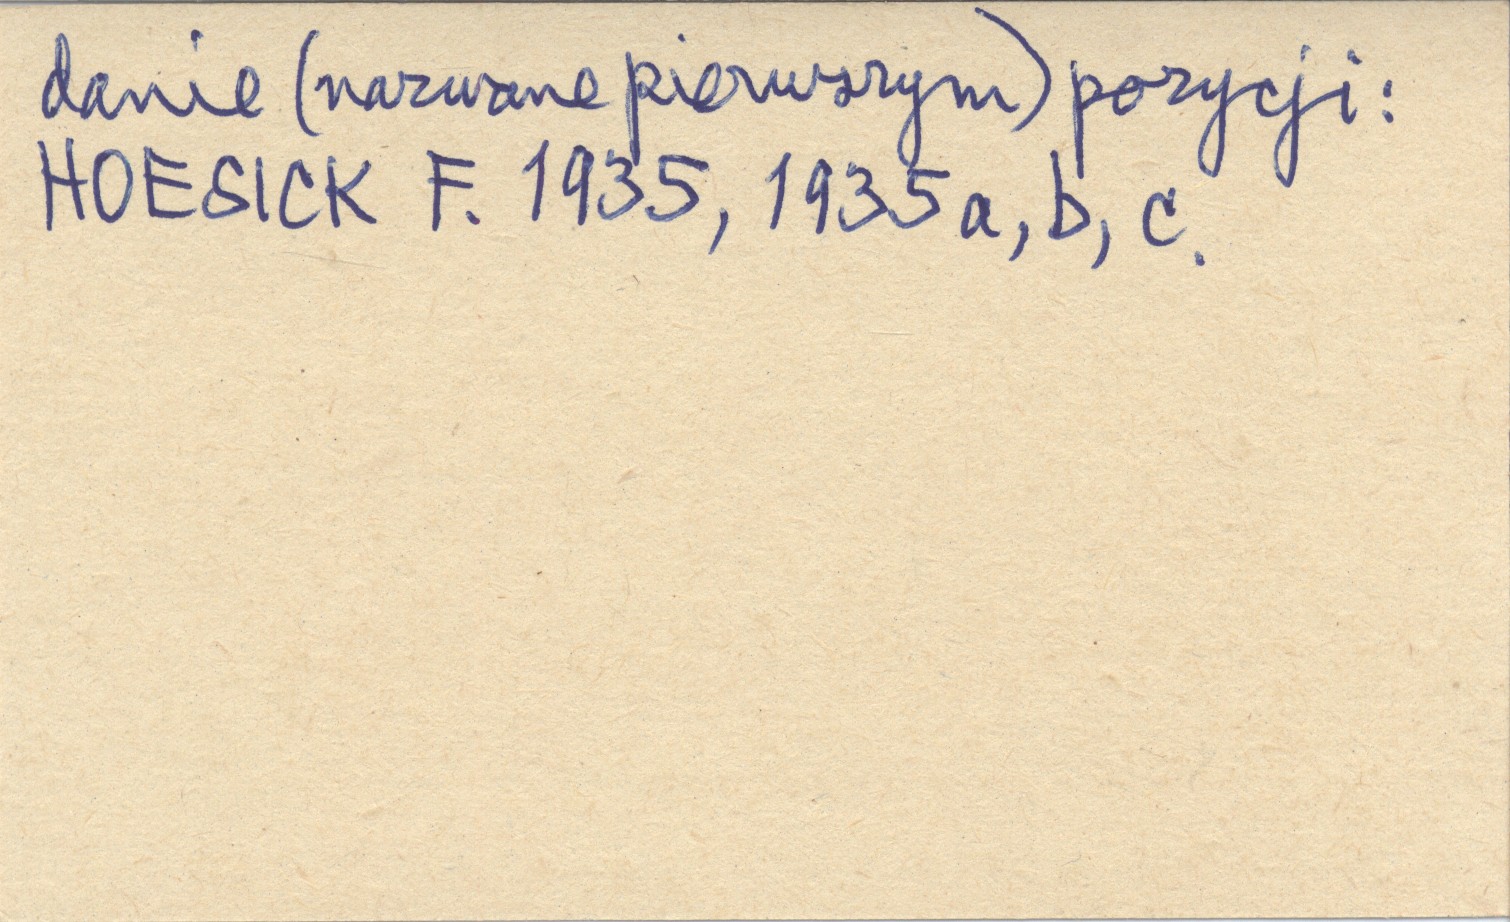 danie (nazwane pierwszym) pozycji:
HOESICK F. 1935, 1935a, b, c.